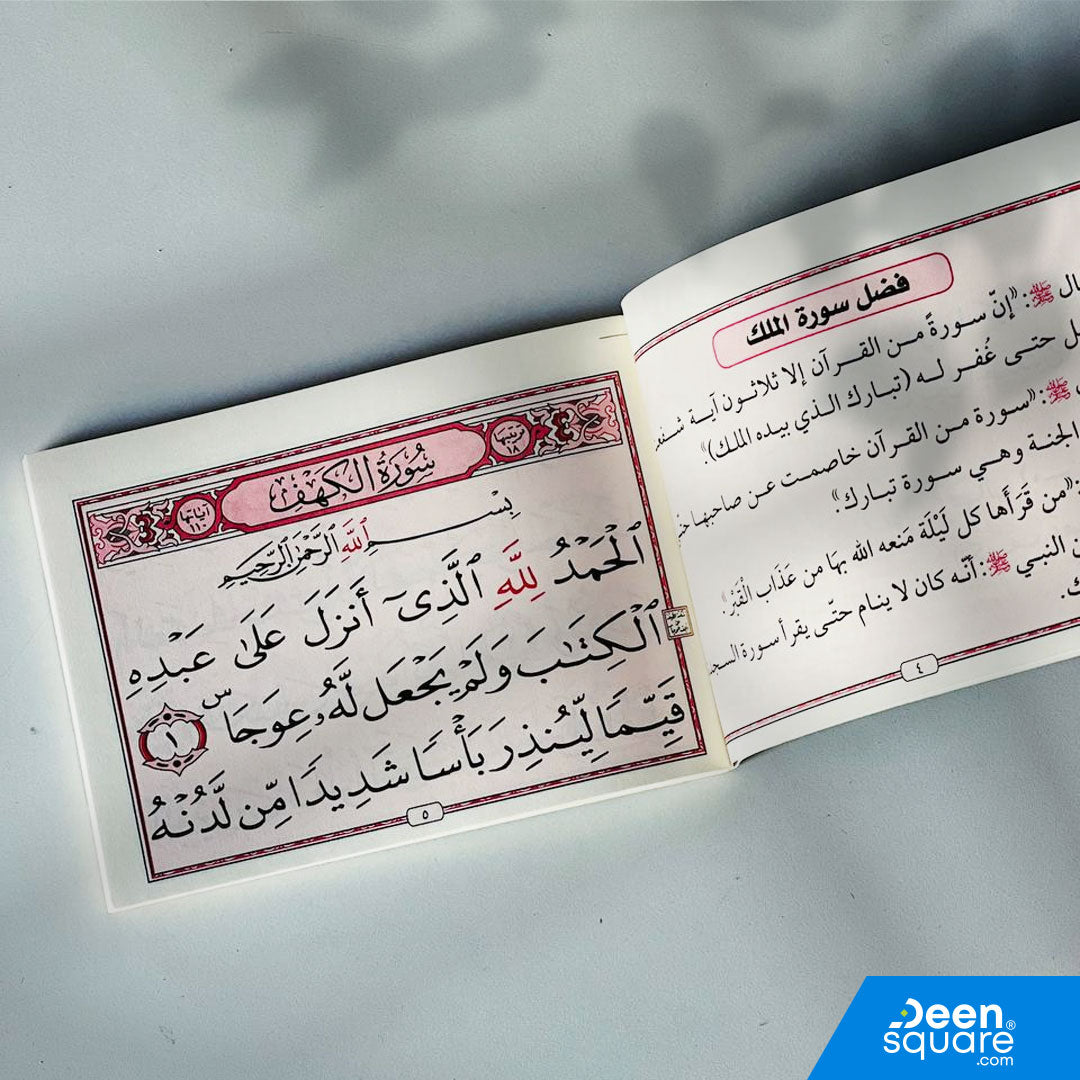 فضل سورة الملك
ﷺ: «إنّ سورةً من القرآن إلا ثلاثون آية
حتى غُفر له (تبارك الذي بيده الملك)».
ﷺ: «سورة من القرآن خاصمت عن صاحبها
الجنة وهي سورة تبارك»
«من قَرَأها كل لَيْلَة مَنعه الله بهَا من عَذَاب الْقَبْرِ»
النبي ﷺ: أنّه كان لا ينام حتّى يقرأ سورة
٤
ترتيبها ١٨
سُورَةُ الْكَهْفِ
آياتها ١١٠
بِسْمِ اللَّهِ الرَّحْمَٰنِ الرَّحِيمِ
ٱلْحَمْدُ لِلَّهِ ٱلَّذِىٓ أَنزَلَ عَلَىٰ عَبْدِهِ
ٱلْكِتَٰبَ وَلَمْ يَجْعَل لَّهُۥ عِوَجَاۜ ١
قَيِّمًا لِّيُنذِرَ بَأْسًا شَدِيدًا مِّن لَّدُنْهُ
٥
Deen®
square
.com